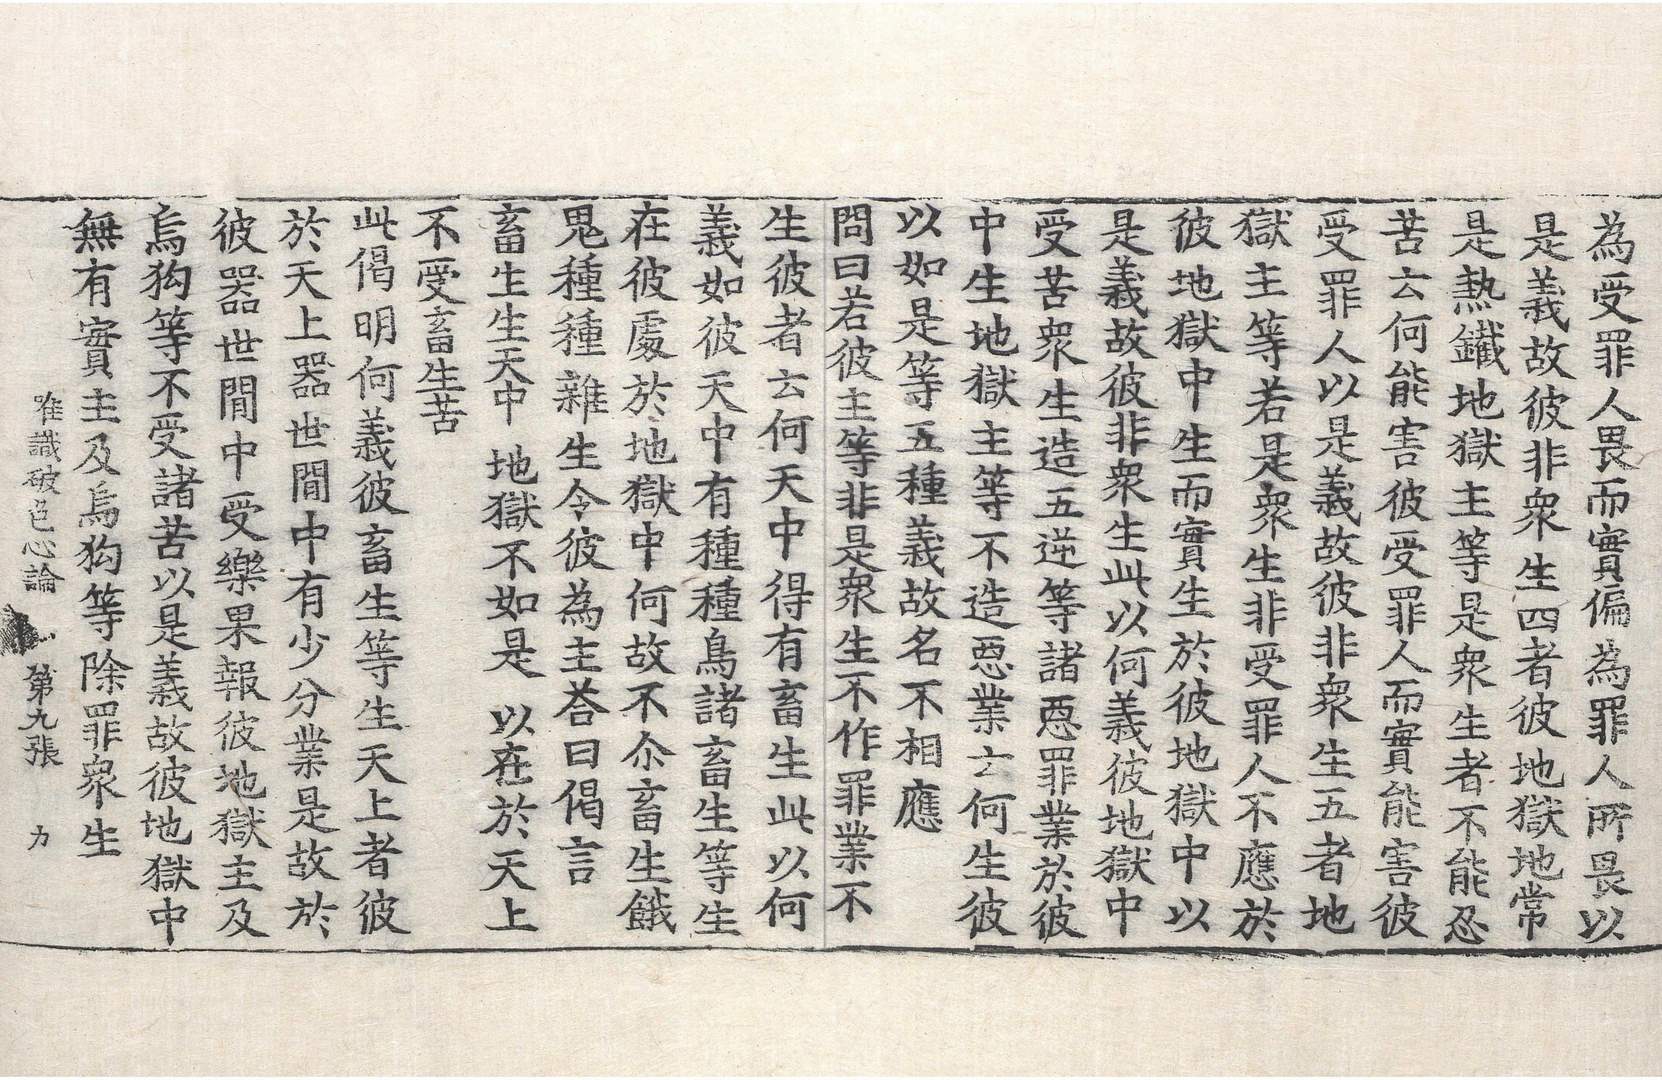 為受罪人畏而實偏為罪人所畏以
是義故彼非衆生四者彼地獄地常
是熱鐵地獄主等是衆生者不能忍
苦云何能害彼受罪人而實能害彼
受罪人以是義故彼非衆生五者地
獄主等若是衆生非受罪人不應於
彼地獄中生而實生於彼地獄中以
是義故彼非衆生此以何義彼地獄中
受苦衆生造五逆等諸惡罪業於彼
中生地獄主等不造惡業云何生彼
以如是等五種義故名不相應
問曰若彼主等非是衆生不作罪業不
生彼者云何天中得有畜生此以何
義如彼天中有種種鳥諸畜生等生
在彼處於地獄中何故不尒畜生餓
鬼種種雜生令彼為主荅曰偈言
畜生生天中 地獄不如是 以在於天上
不受畜生苦
此偈明何義彼畜生等生天上者彼
於天上器世間中有少分業是故於
彼器世間中受樂果報彼地獄主及
烏狗等不受諸苦以是義故彼地獄中
無有實主及烏狗等除罪衆生
唯識破色心論 第九張 力